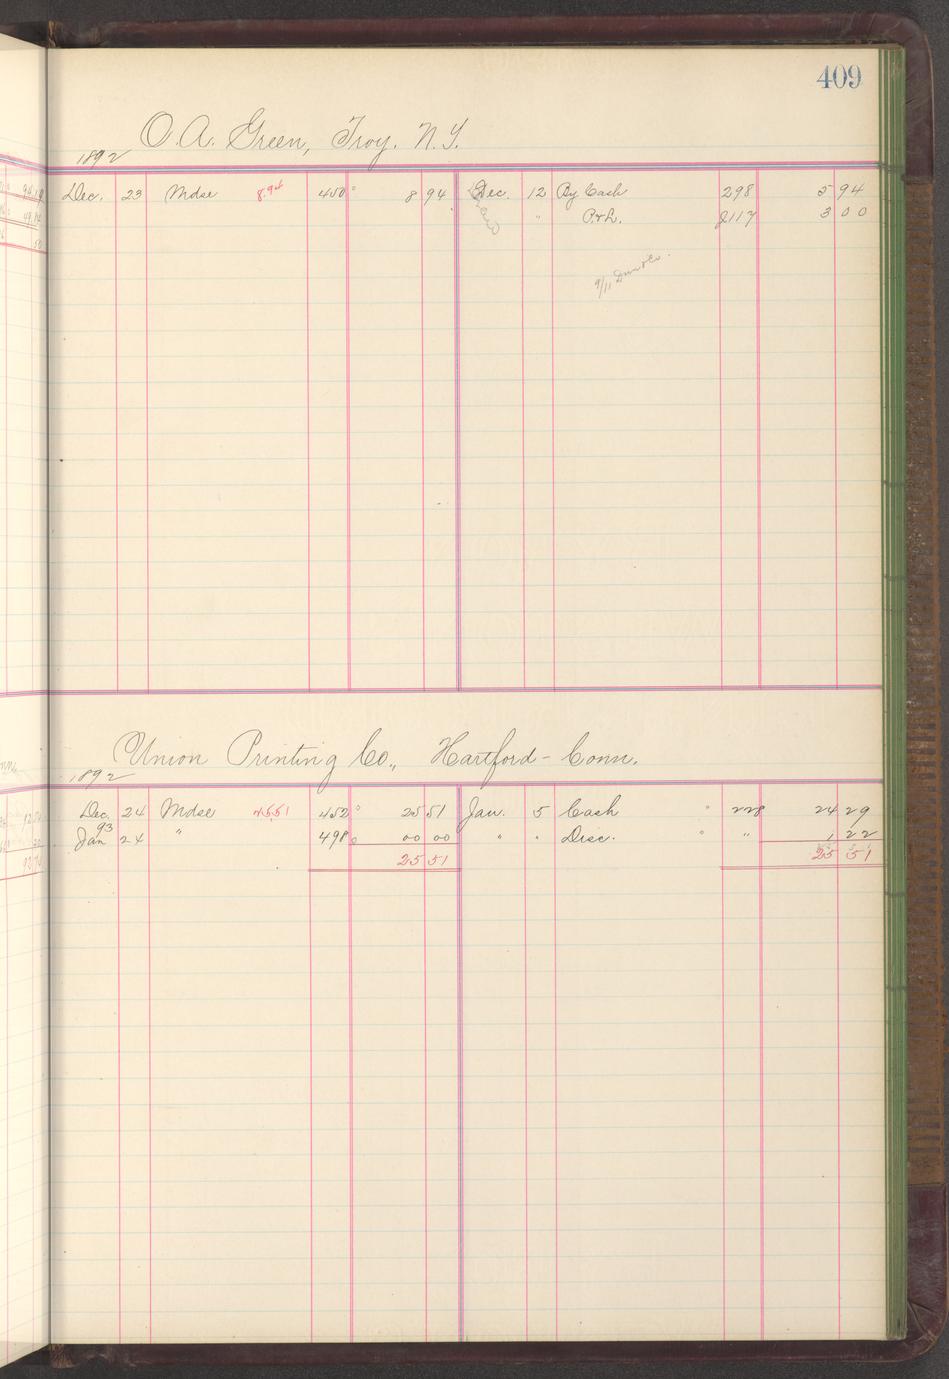 409
O. A. Green, Troy. N.Y.
1892
Dec. 23 Mdse 8.94 450 8 94 Dec. 12 By Cash 298 5 94
" P. & L. J117 3 00
9/11 Dun & Co.
Union Printing Co., Hartford - Conn.
1892
Dec. 24 Mdse 452 25 51 Jan. 5 Cash " 228 24 29
93
Jan 24 " 498 00 00 " " Disc. " " 1 22
25 51 25 51